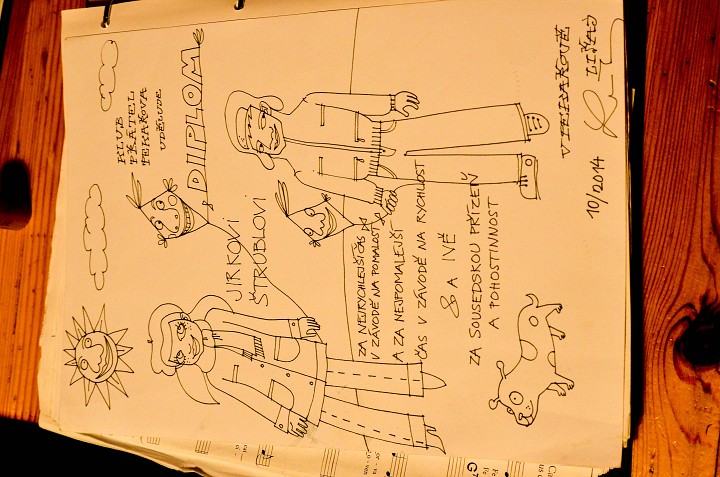 KLUB
PŘÁTEL
PEKAKOVA
UDĚLUJE
DIPLOM
JIRKOVI
ŠTRUBLOVI
ZA NEJRYCHLEJŠÍ ČAS
V ZÁVODĚ NA POMALOST
A ZA NEJPOMALEJŠÍ
ČAS V ZÁVODĚ NA RYCHLOST
& A IVĚ
ZA SOUSEDSKOU PŘÍZEŇ
A POHOSTINNOST
10/2014
G7